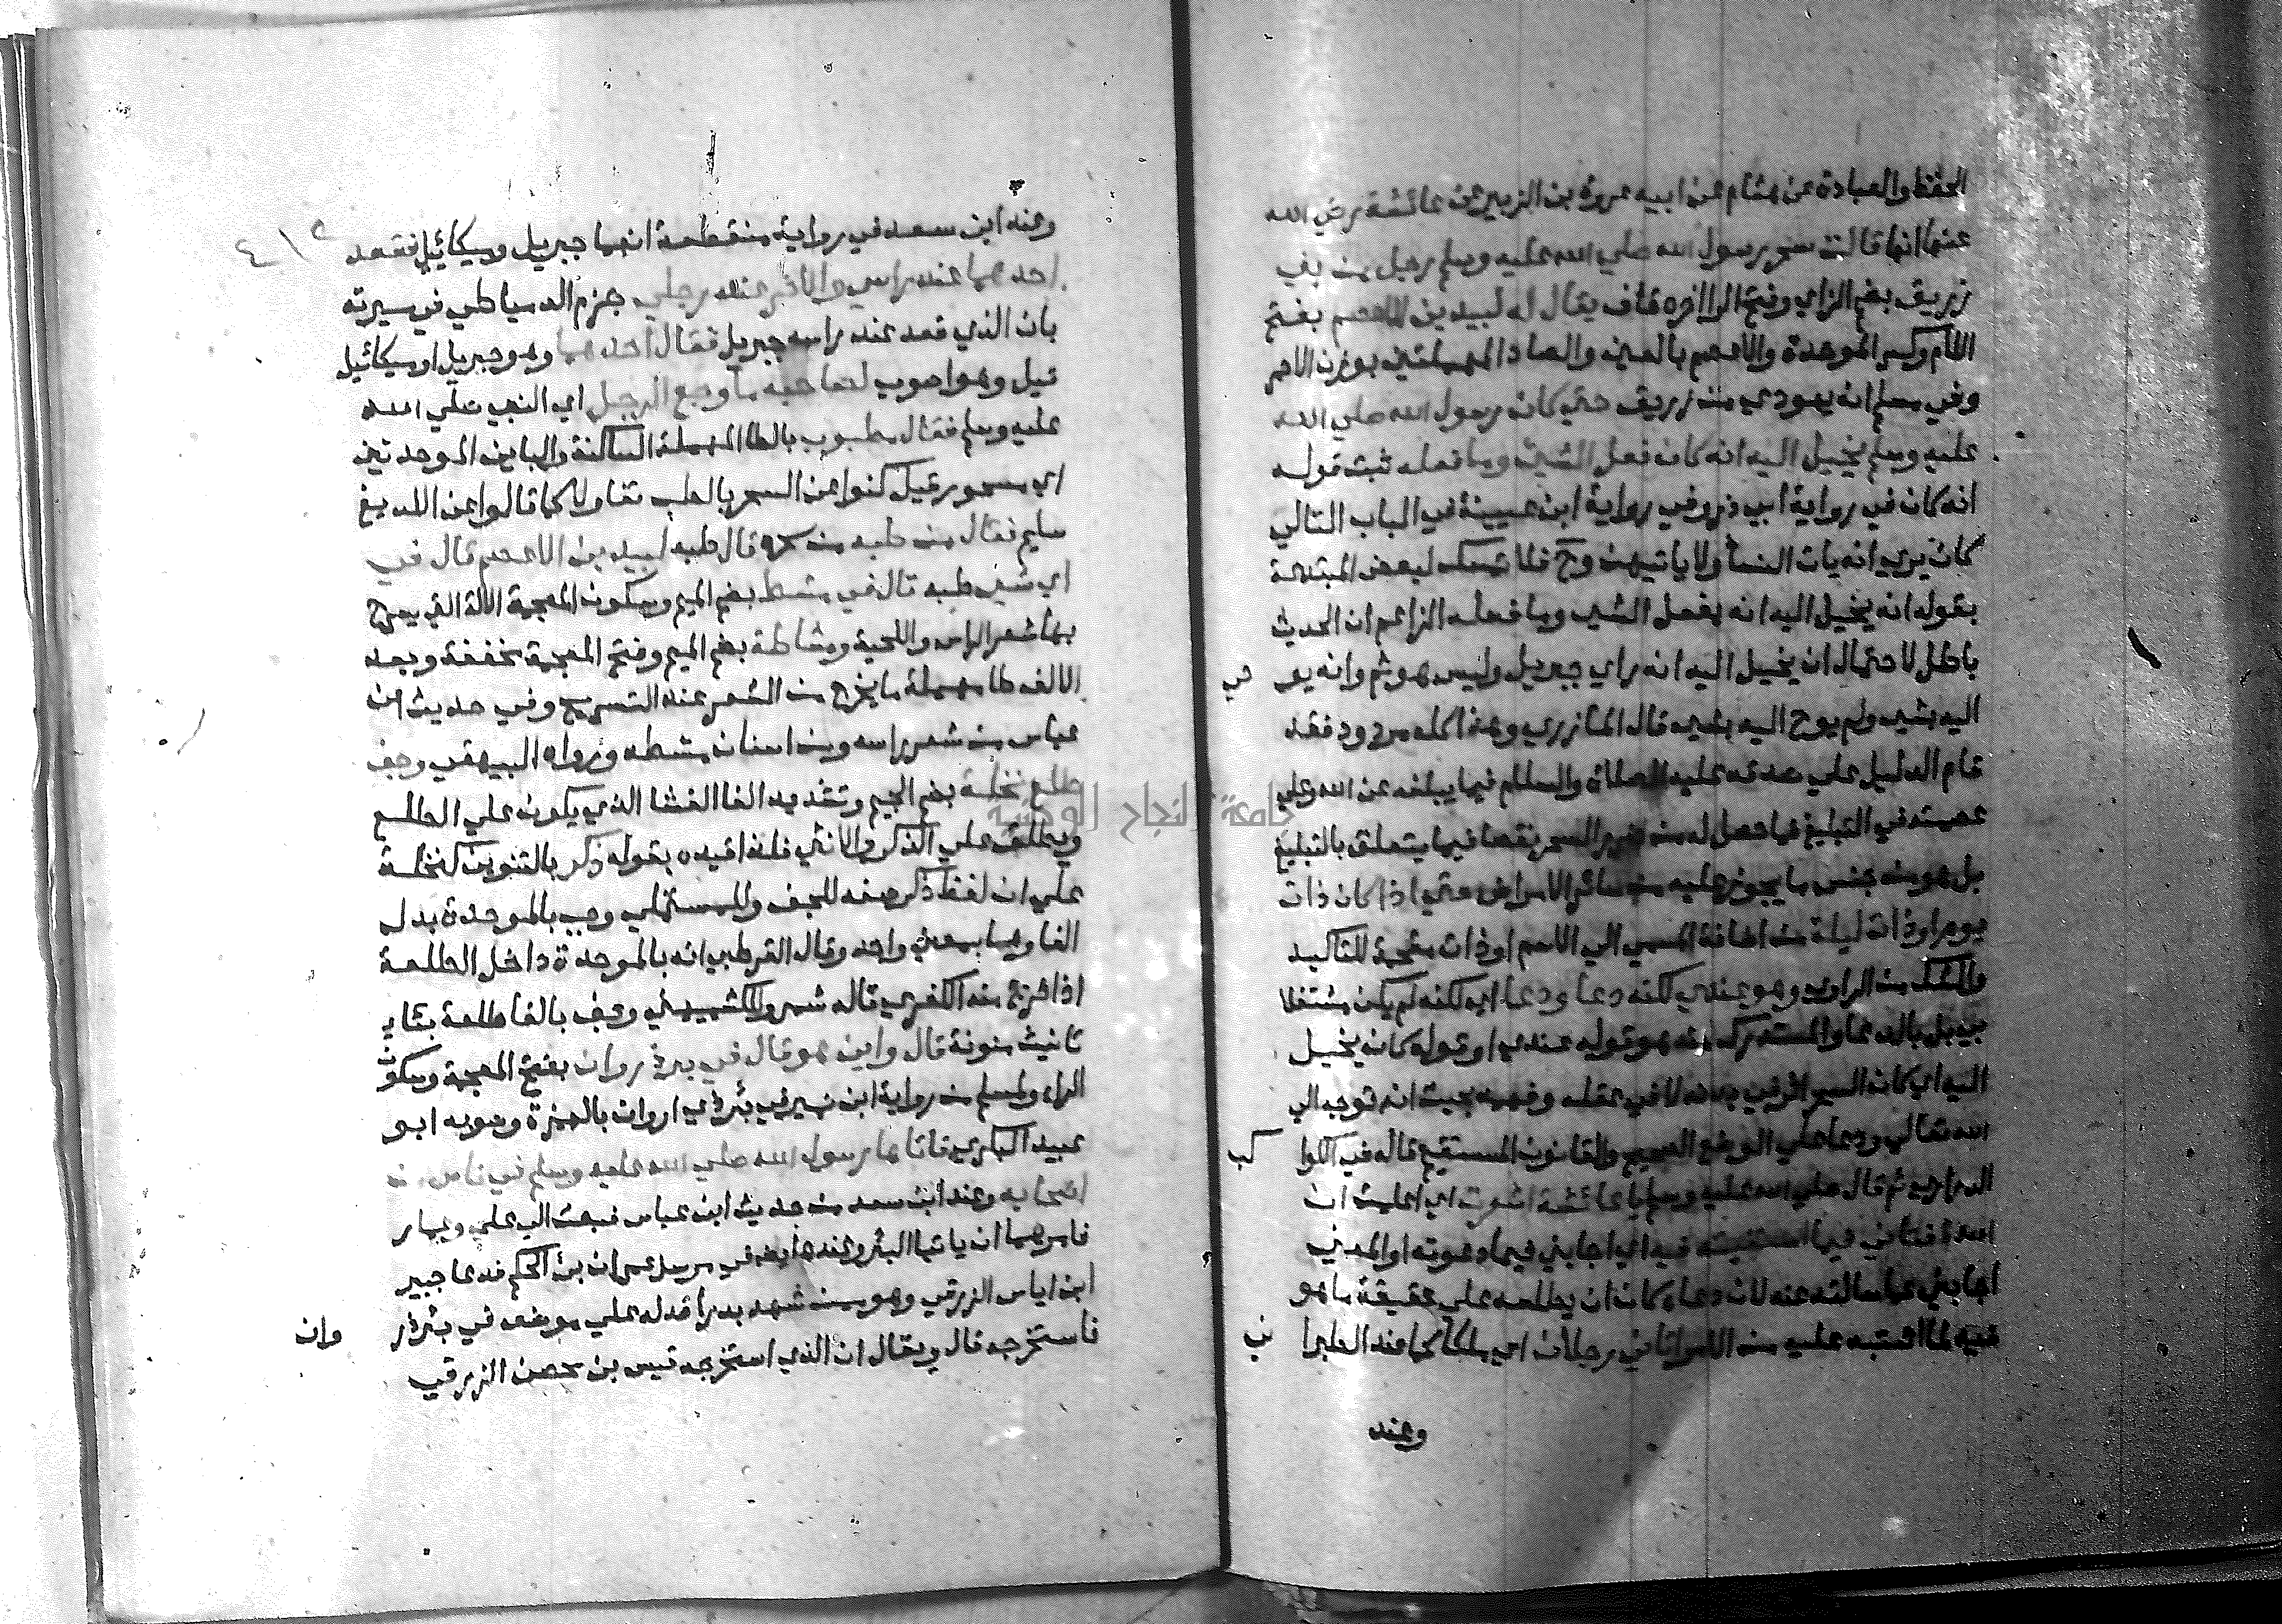 الحفظ والعبادة عن هشام عن ابيه عروة بن الزبير عن عائشة رضي الله
عنها انها قالت سحر رسول الله صلي الله عليه وسلم رجل من بني
زريق بضم الزاي وفتح الرا اخره قاف يقال له لبيد بن الاعصم بفتح
اللام وكسر الموحدة والاعصم بالعين والصاد المهملتين بوزن الاحمر
وفي مسلم انه يهودي من زريق حتي كان رسول الله صلي الله
عليه وسلم يخيل اليه انه كان فعل الشي وما فعله ثبت قوله
انه كان في رواية ابي ذر وفي رواية ابن عيينة في الباب التالي
كان يري انه يات النسا ولا ياتيهن وح فلا تمسك لبعض المبتدعة
بقوله انه يخيل اليه انه يفعل الشي وما فعله الزاعم ان الحديث
باطل لاحتمال ان يخيل اليه انه راي جبريل وليس هو ثم وانه يو حي
اليه بشي ولم يوح اليه بشي قال المازري وهذا كله مردود فقد
قام الدليل علي صدقه عليه الصلاة والسلام فيما يبلغه عن الله وعلي
عصمته في التبليغ فما حصل له من ضرر السحر نقصا فيما يتعلق بالتبليغ
بل هو من جنس ما يجوز عليه من سائر الامراض حتي اذا كان ذات
يوم او ذات ليلة من اضافة المسمي الي الاسم او ذات مقحمة للتاكيد
والشك من الراوي وهو عندي لكنه دعا ودعا اي لكنه لم يكن مشتغلا
بي بل بالدعا والمستدرك منه هو قوله عندي او قوله كان يخيل
اليه اي كان السحر اثر في بدنه لا في عقله وفهمه بحيث انه توجه الي
الله تعالي ودعا علي الوضع الصحيح والقانون المستقيم قاله في الكوا كب
الدراري ثم قال صلي الله عليه وسلم يا عائشة اشعرت اي اعلمت ان
الله افتاني فيما استفتيته فيه اي اجابني فيما دعوته او المعني
اجابني عما سالته عنه لان دعاه كان ان يطلعه علي حقيقة ما هو
فيه لما اشتبه عليه من الامر اتاني رجلان اي ملكا كما عند الطبرا ني
وعند
٤١٥
وعند ابن سعد في رواية منقطعة انهما جبريل وميكائيل فقعد
احدهما عند راسي والاخر عند رجلي جزم الدمياطي في سيرته
بان الذي قعد عند راسه جبريل فقال احدهما وهو جبريل او ميكائيل
قيل وهو اصوب لصاحبه ما وجع الرجل اي النبي صلي الله
عليه وسلم فقال مطبوب بالطا المهملة الساكنة والباين الموحدتين
اي مسحور قيل كنوا عن السحر بالطب تفاولا كما قالوا عن اللديغ
سليم فقال من طبه من سحره قال طبه لبيد بن الاعصم قال في
اي شي طبه قال في مشط بضم الميم وسكون المعجمة الالة التي يسرح
بها شعر الراس واللحية ومشاطة بضم الميم وفتح المعجمة مخففة وبعد
الالف طا مهملة ما يخرج من الشعر عند التسريح وفي حديث ابن
عباس من شعر راسه ومن اسنان مشطه ورواه البيهقي وجف
طلع نخلة بضم الجيم وتشديد الفا الغشا الذي يكون علي الطلع
ويطلق علي الذكر والانثي فلذا قيده بقوله ذكر بالتنوين كنخلة
علي ان لفظ ذكر صفه للجف وللمستملي وجب بالموحدة بدل
الفا وهما بمعني واحد وقال القرطبي انه بالموحدة داخل الطلعة
اذا خرج منه الكفري قاله شمر وللكشميهني وجف بالفا طلعة بتاء
تانيث منونة قال واين هو قال في بير ذروان بفتح المعجمة وسكون
الراء ولمسلم من رواية ابن نمير في بئر ذي اروان بالهمزة وصوبه ابو
عبيد البكري فاتاها رسول الله صلي الله عليه وسلم في ناس من
اصحابه وعند ابن سعد من حديث ابن عباس فبعث الي علي وعمار
فامرهما ان ياتيا البئر وعنده ايضا في مرسل عمر ان بن الحكم فدعا جبير
ابن اياس الزرقي وهو ممن شهد بدرا فدله علي موضعه في بئر ذر وان
فاستخرجه قال ويقال ان الذي استخرجه قيس بن محصن الزرقي
جامعة النجاح الوطنية